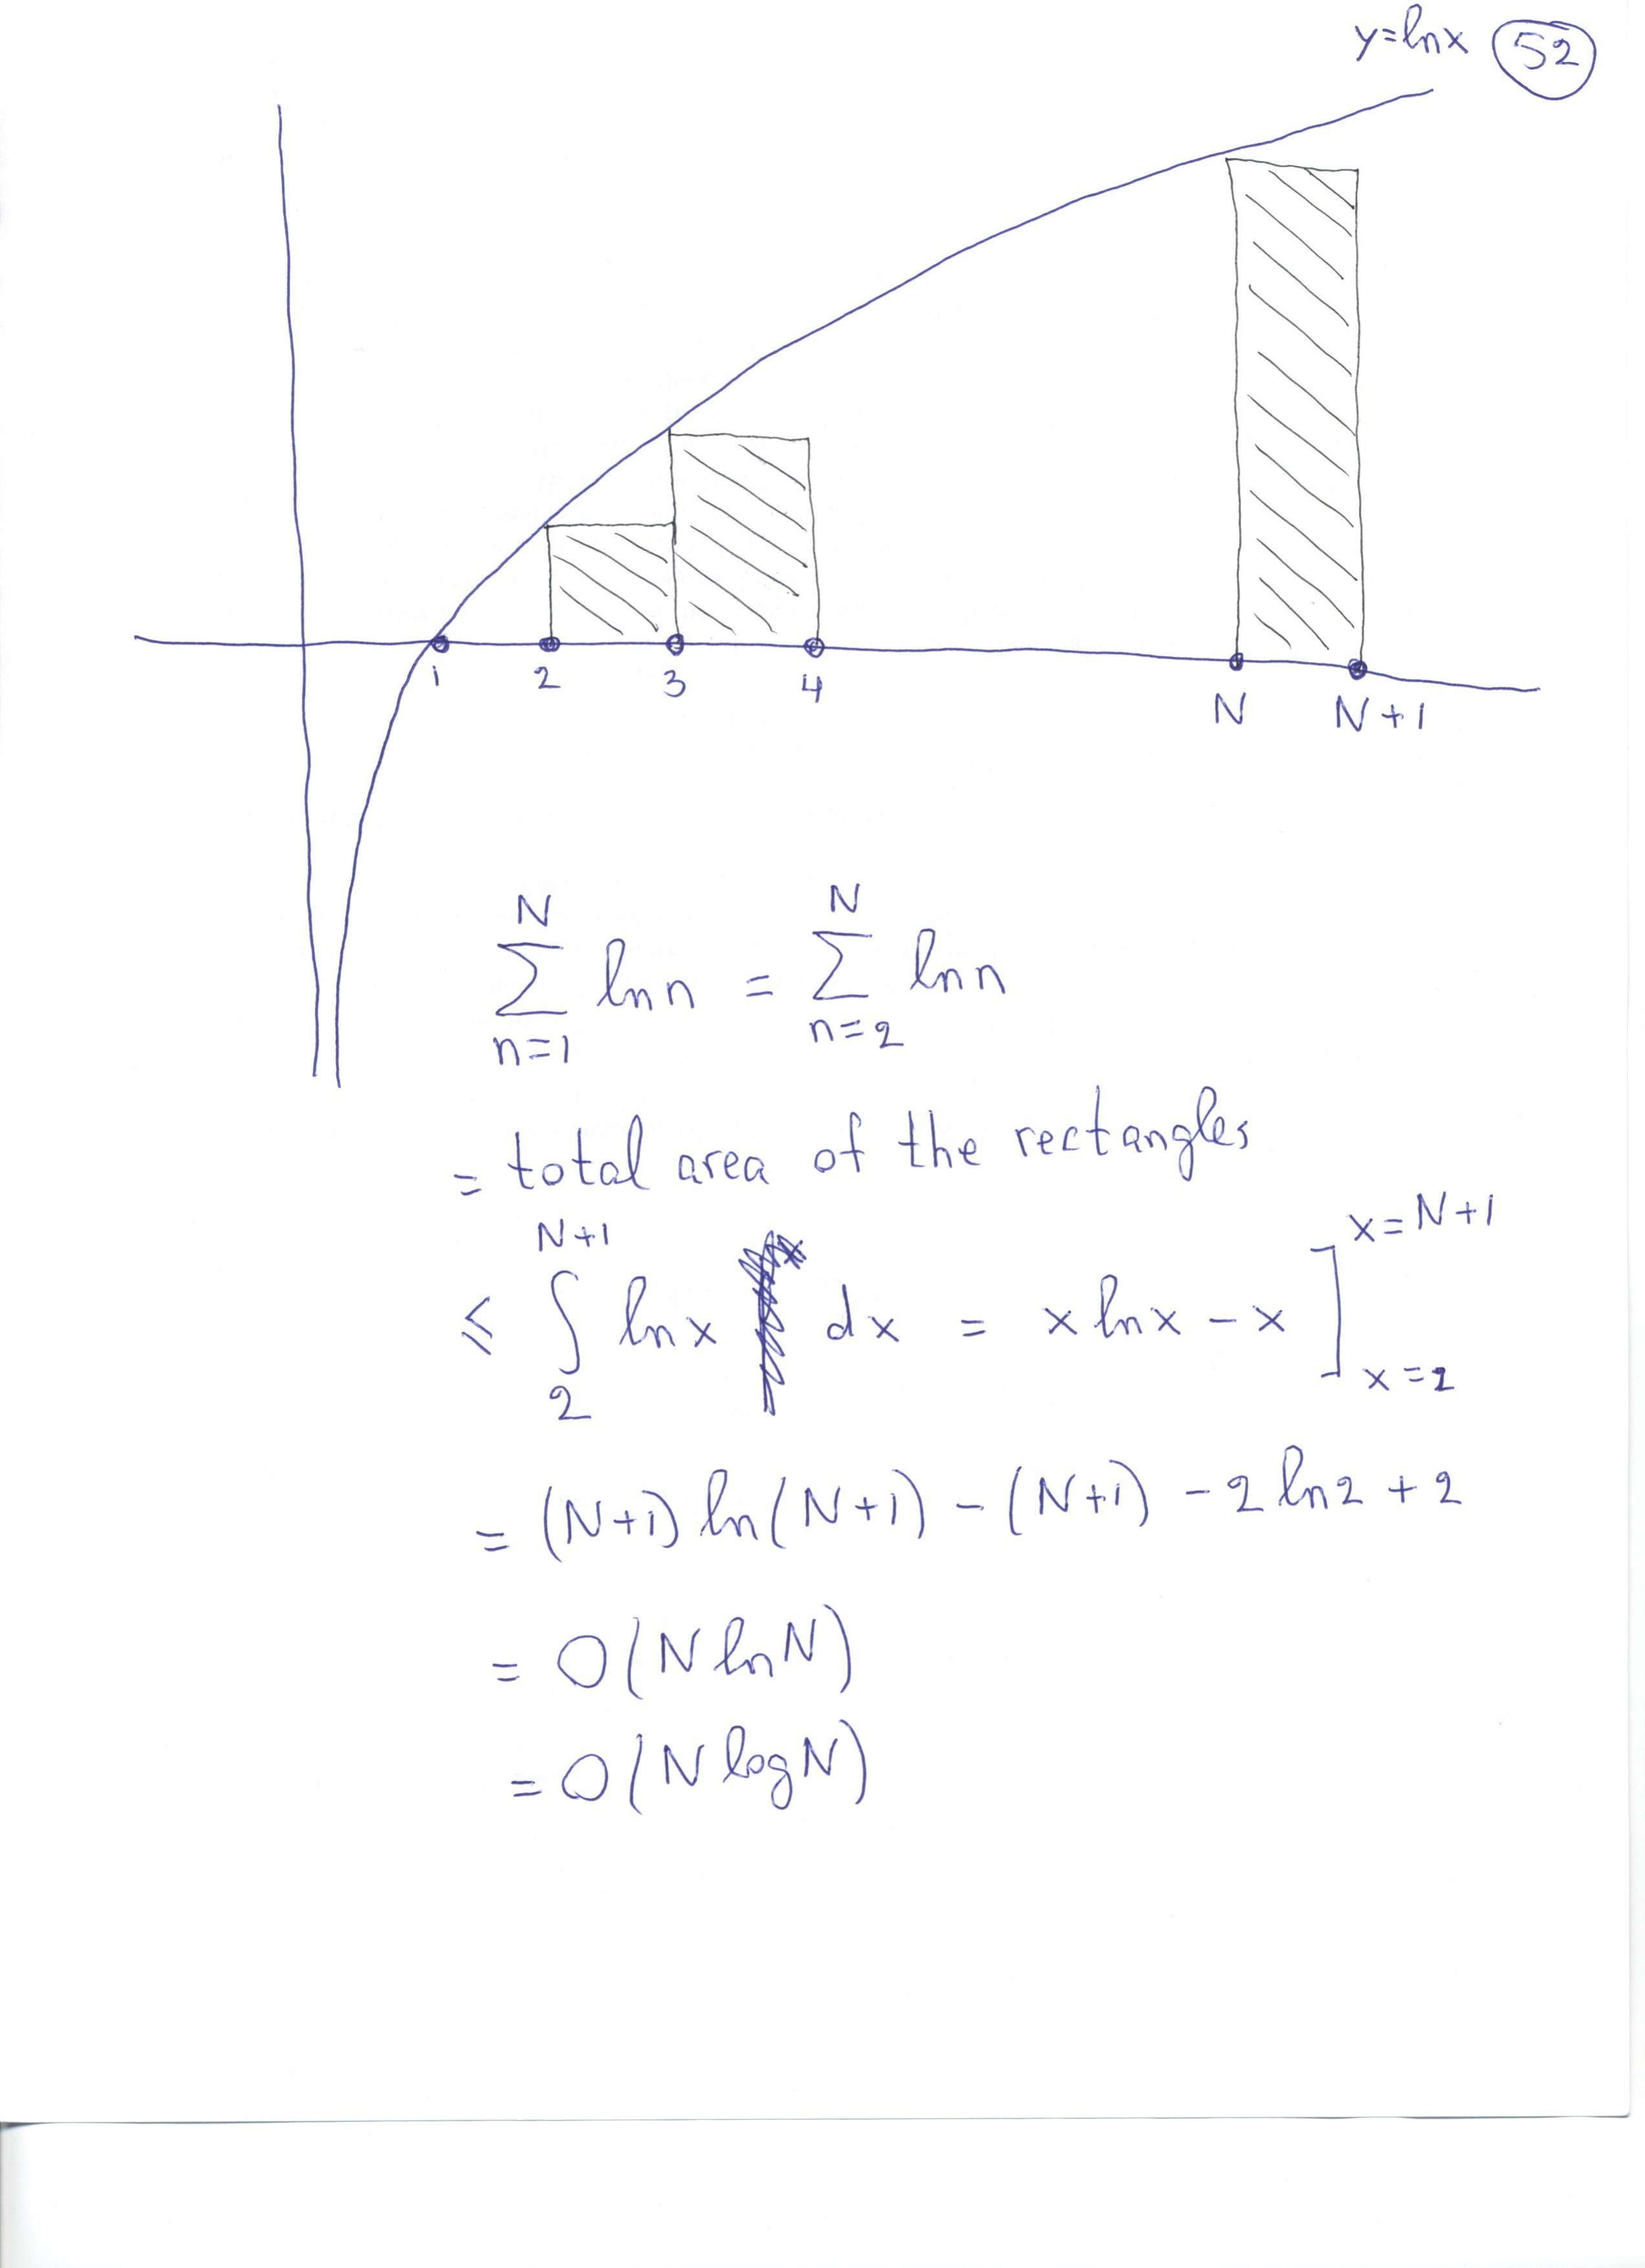 y=lnx 52
1 2 3 4 N N+1
N N
∑ ln n = ∑ ln n
n=1 n=2
= total area of the rectangles
N+1 x=N+1
≤ ∫ ln x dx = x ln x - x ]
2 x=2
= (N+1) ln(N+1) - (N+1) - 2 ln 2 + 2
= O(N ln N)
= O(N log N)